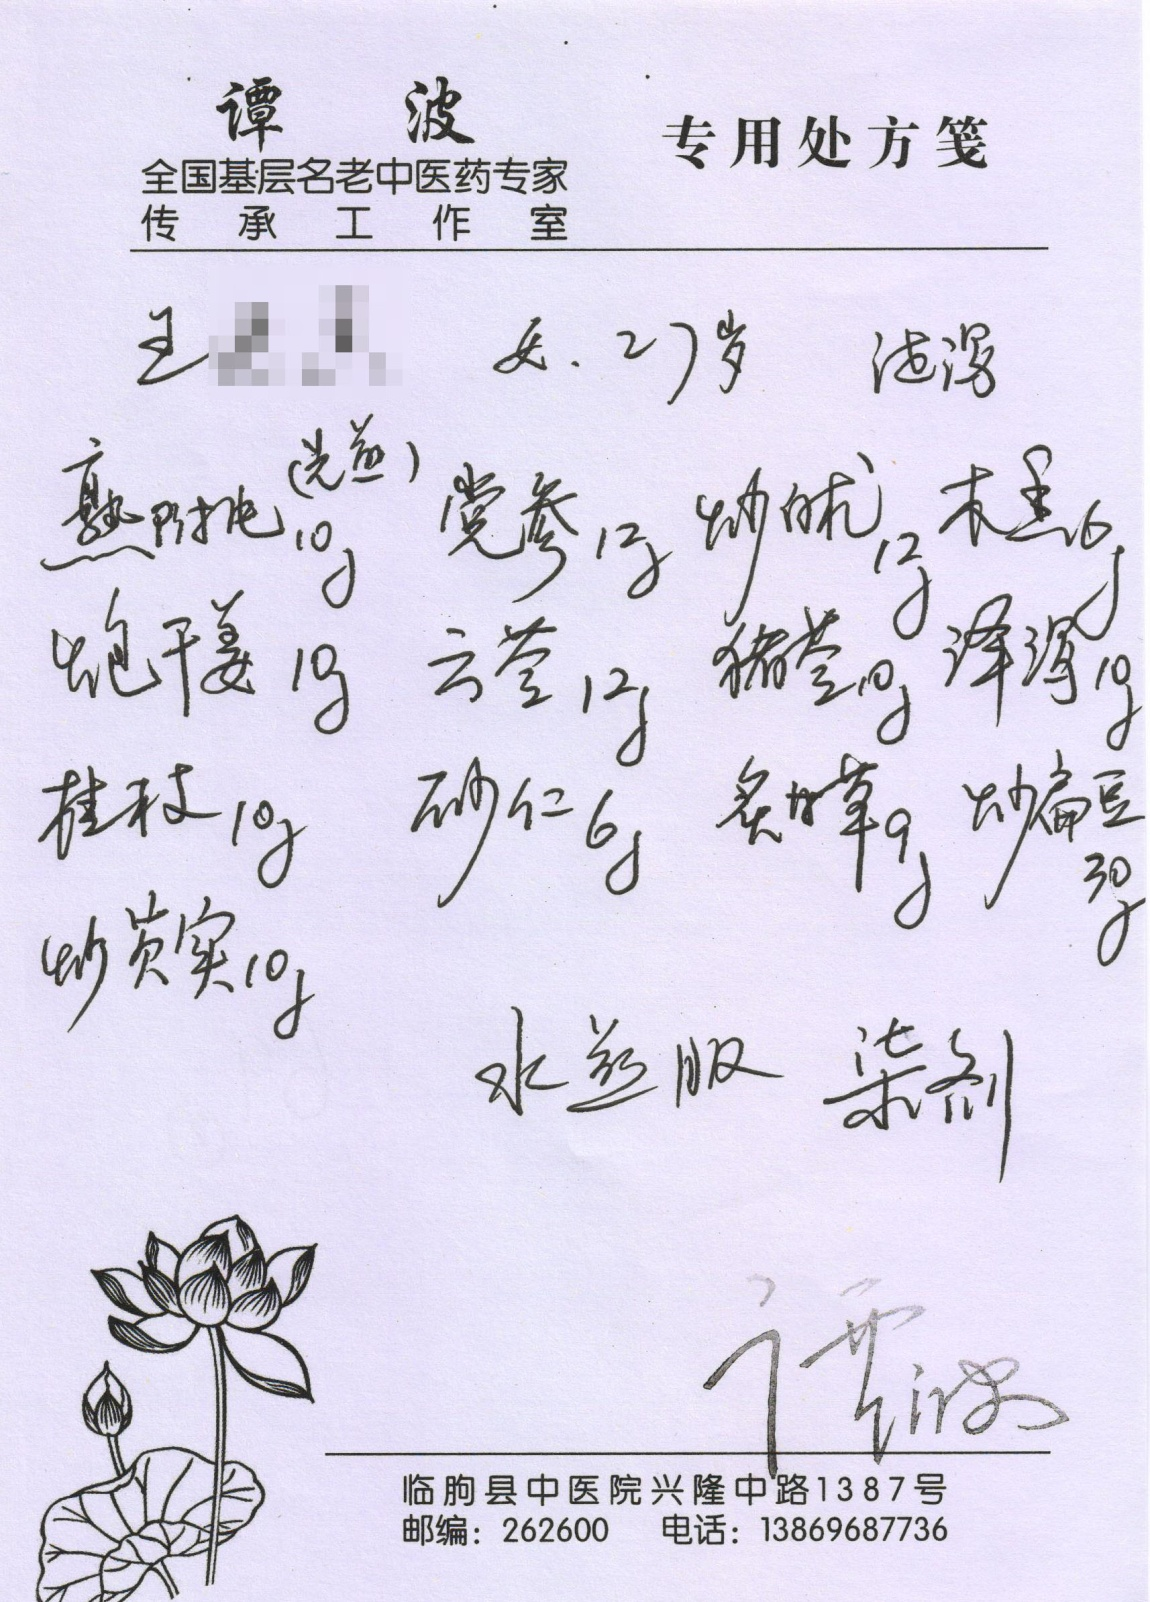 谭波 专用处方笺
全国基层名老中医药专家
传承工作室
王 女.27岁 泄泻
熟附片(先煎)10g 党参12g 炒白术12g 木香6g
炮干姜10g 云苓12g 猪苓10g 泽泻10g
桂枝10g 砂仁6g 炙甘草9g 炒扁豆30g
炒芡实10g
水煎服 柒剂
谭波
临朐县中医院兴隆中路1387号
邮编：262600 电话：13869687736